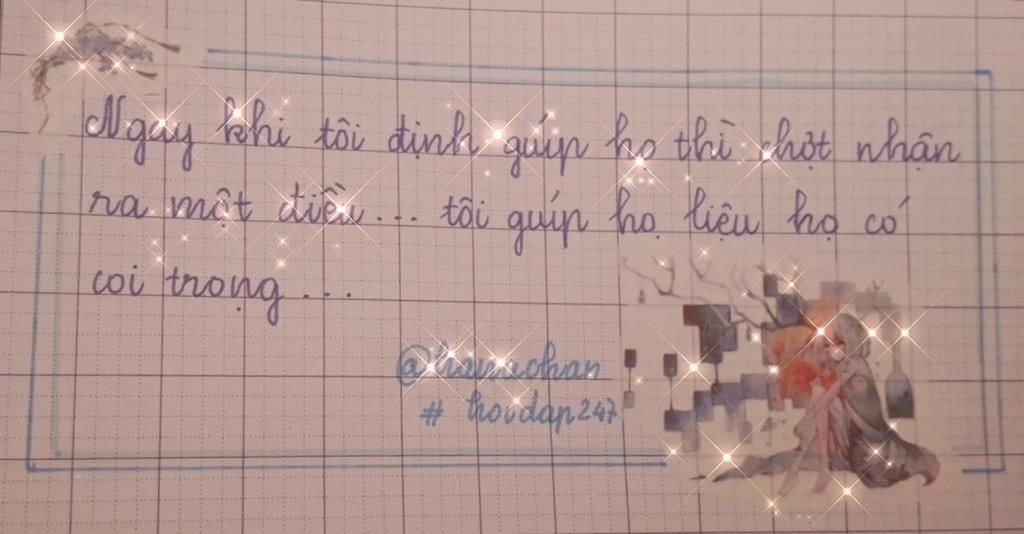 Ngay khi tôi định guíp họ thì chợt nhận
ra một điều... tôi guíp họ liệu họ có
coi trọng...
@hanachan
# hoidap247